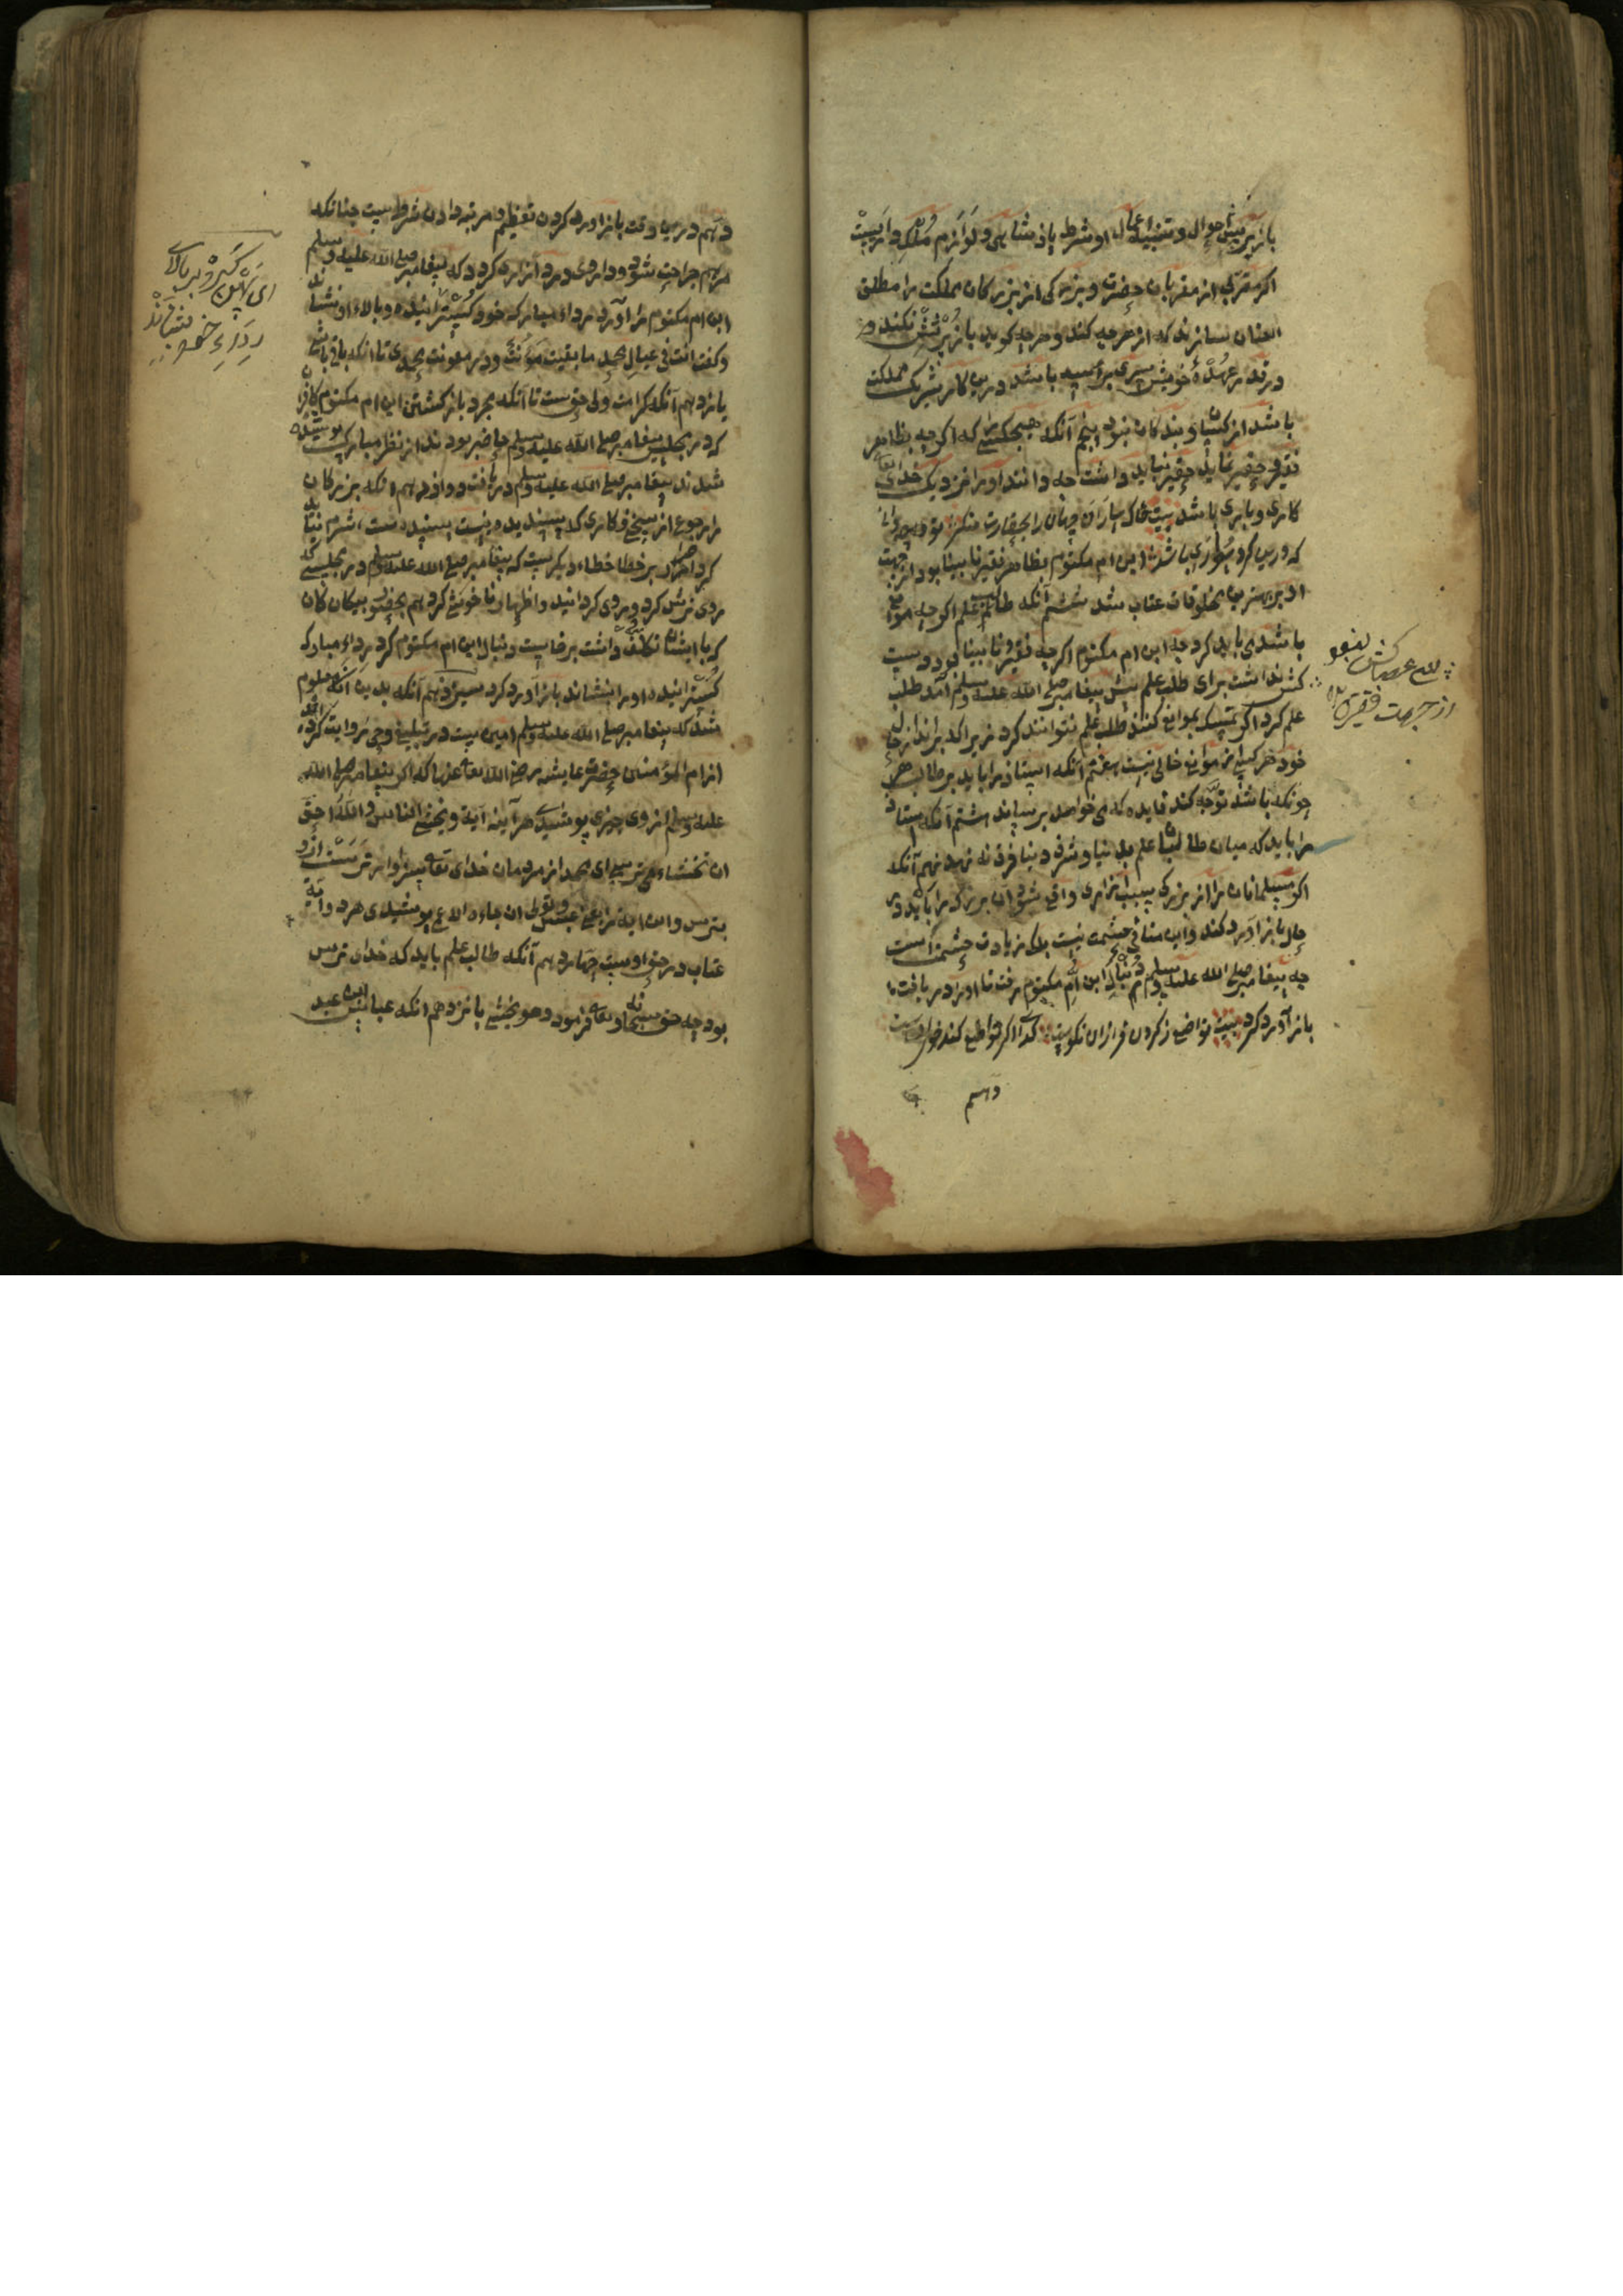 باز پرسش احوال و تنبیه اعمال او شرط پادشاهی و لوازم ملک داریست
اکر مقربی از مقربان حضرت و بزرکی از بزرکان مملکت را مطلق
العنان سازند که از هرچه کند و هرچه کوید باز پرسش نکنند و
در عهدهٔ خویش باشد درین کار شریک مملکت
باشد از و بندکان نبود پنجم آنکه هیچکس را که اکرچه بظاهر
فقیر و حقیر نماید حقیر نباید داشت چه دانند او را نزدیک خدای تعالی
کاری و باری باشد بیت خاکساران جهان را بحقارت منکر تو چه دانی
که درین کرد سواری باشد ابن ام مکتوم بظاهر فقیر نابینا بود از جهت
او بهترین مخلوقات عتاب شد ششم آنکه طلب علم اکرچه موانع
باشد می باید کرد چه ابن ام مکتوم اکرچه فقیر و نابینا بود و دست
کش نداشت برای طلب علم پیش پیغامبر صلی الله علیه وسلم آمد طلب
علم کرد اکر تمسک بموانع کنند طلب علم نتوانند کرد زیرا که
خود هر کسی از موانع خالی نیست هفتم آنکه استاذ را باید بر طالب هر
چونکه باشد توجه کند فایده که می خواهد برساند هشتم آنکه استاذ
را باید که میان طالبان علم بدنیا و شرف دنیا فرق نه نهد نهم آنکه
اکر مسلمانان را از بزرکی بسبب ازاری واقع شود آن بزرک را باید در
حال باز آورد کند و این منافی حشمت نیست بلک زیادت حشمت است
چه پیغامبر صلی الله علیه وسلم دنبال ابن ام مکتوم رفت تا او را دریافت
باز آورد کرد بیت تواضع ز کردن فرازان نکوست کدا اکر تواضع کند خوی اوست
دهم
دهم درین وقت باز آورد کردن تعظیم و مرتبه دادن شرط است چنانکه
مرهم جراحت شود و داروی درد ازار کردد که پیغامبر صلی الله علیه وسلم
ابن ام مکتوم را آورد رداء مبارکه خود کسترانیده و بالاء او نشاند
وکفت انت فی عیال محمد ما بقیت مؤنت و در معونت محمدی تا آنکه باقی باشی
یازدهم آنکه کرامت ولی حق است تا آنکه بمجرد باز کشتن ابن ام مکتوم کافران
که در مجلس پیغامبر صلی الله علیه وسلم حاضر بودند از نظر مبارک پوشیده
شدند پیغامبر صلی الله علیه وسلم دریافت دوازدهم آنکه بزرکان
را رجوع از سخن و کاری که پسندیده نیست پسندیده است شرم نباید
کرد اصرار بر خطا خطاء دیکرست که پیغامبر صلی الله علیه وسلم در مجلسی که
روی ترش کرد و روی کردانید و اظهار ناخوشی کرد هم بحضور بیکانکان
که با ایشان تکلف داشت برخاست و دنبال ابن ام مکتوم کرد رداء مبارکه
کسترانیده او را بنشاند باز آورد کرد سیزدهم آنکه بدین آنکه معلوم
شد که پیغامبر صلی الله علیه وسلم امین است در تبلیغ وحی روایت کرده اند
از ام المؤمنین حضرت عایشه رضی الله تعالی عنها که اکر پیغامبر صلی الله
علیه وسلم از وحی چیزی پوشیدی هر آینه آیة وتخشی الناس والله احق
ان تخشاه می ترسی ای محمد از مردمان خدای تعالی سزاوارتر است از و
بترس و این آیة عبس وتولی ان جاءه الاعمی پوشیدی هر دو آیة
عتاب در حق اوست چهاردهم آنکه طالب علم باید که خدای ترس
بود چه حق سبحانه وتعالی فرمود وهو یخشی پانزدهم آنکه عباس ابن عبد
از جهت فقیر
ای پهن کرد بر بالای
رداء خود بنشاند